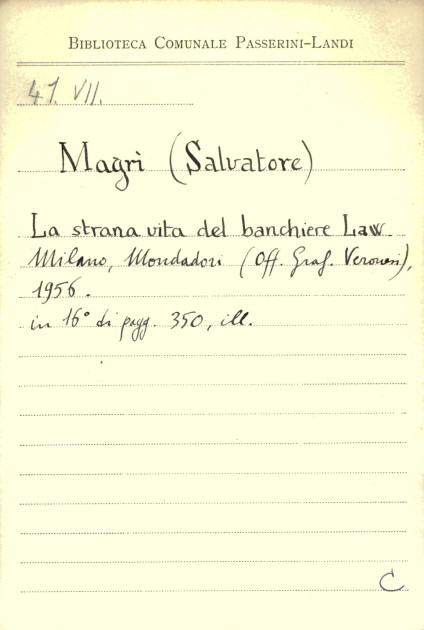 BIBLIOTECA COMUNALE PASSERINI-LANDI
41. VII.
Magrì (Salvatore)
La strana vita del banchiere Law.
Milano, Mondadori (Off. Graf. Veronesi),
1956.
in 16° di pagg. 350, ill.
C